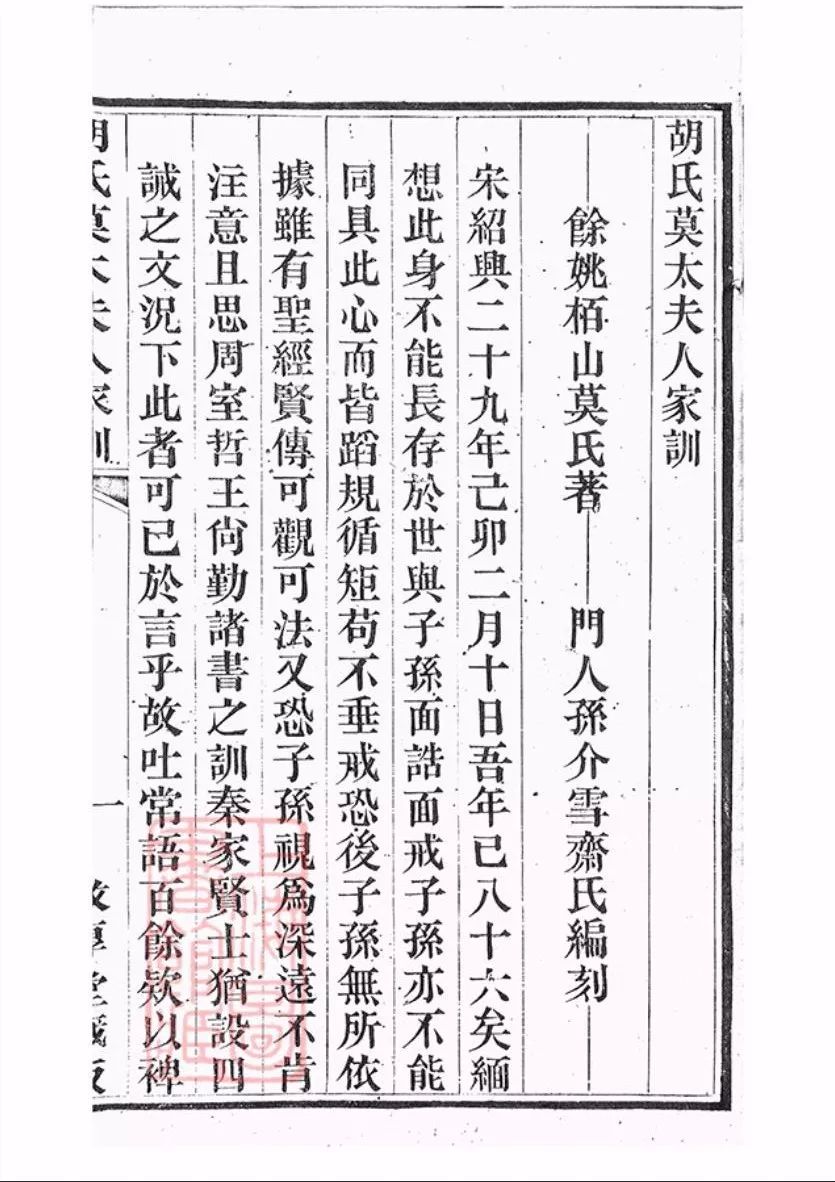 胡氏莫太夫人家訓
餘姚栢山莫氏著　門人孫介雪齋氏編刻
宋紹興二十九年己卯二月十日吾年已八十六矣緬
想此身不能長存於世與子孫面誥面戒子孫亦不能
同具此心而皆蹈規循矩苟不垂戒恐後子孫無所依
據雖有聖經賢傳可觀可法又恐子孫視爲深遠不肯
注意且思周室哲王尙勤諸書之訓秦家賢士猶設四
誡之文況下此者可已於言乎故吐常語百餘欵以裨
胡氏莫太夫人家訓
一